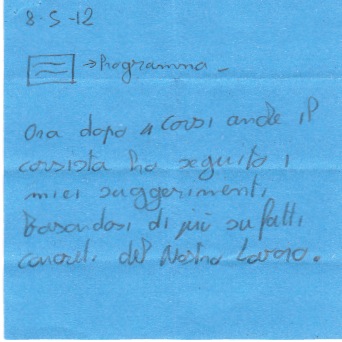 8-5-12
→ Programma -
Ora dopo 4 corsi anche il
corsista ha seguito i
miei suggerimenti,
Basandosi di più su fatti
concreti del Nostro Lavoro.